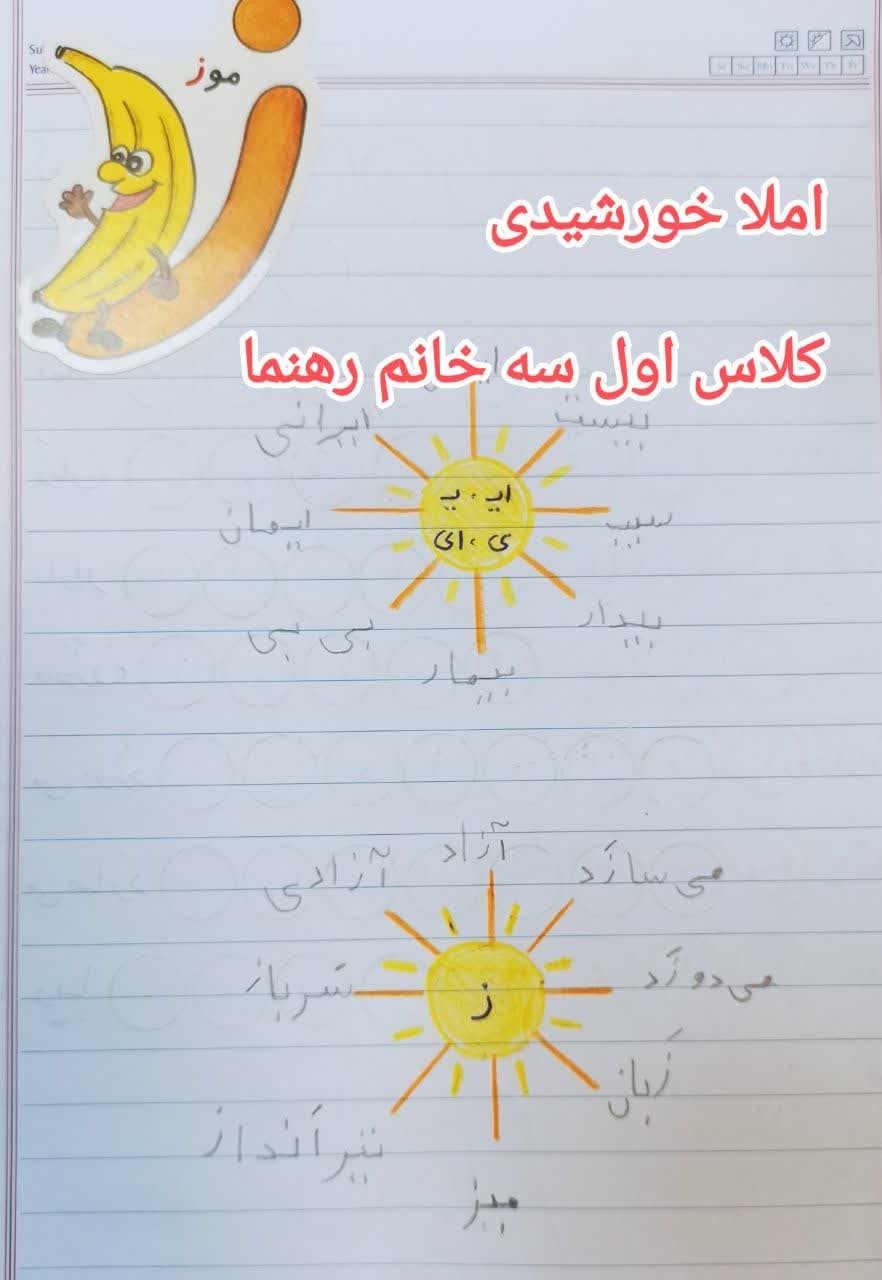 Su
Yea
موز
ز
املا خورشیدی
کلاس اول سه خانم رهنما
بیست
ایرانی
ایـ ، یـ
ی ، ای
سیب
ایمان
بیدار
بی بی
بیمار
آزاد
می سازَد
آزادی
می دوزَد
ز
سَرباز
زَبان
تیر اَنداز
میز